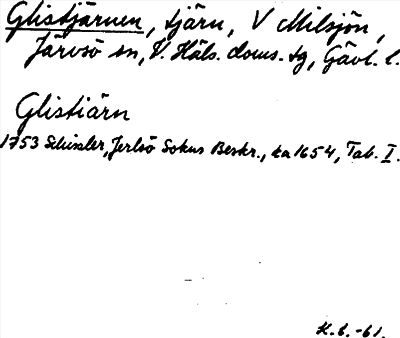 Glistjärnen, tjärn, V Milsjön,
Järvsö sn, V. Häls. doms. tg, Gävl. l.
Glistiärn
1753 Schissler, Jerlsö Sokns Beskr., ka 1654, Tab. I.
K.L. -61.